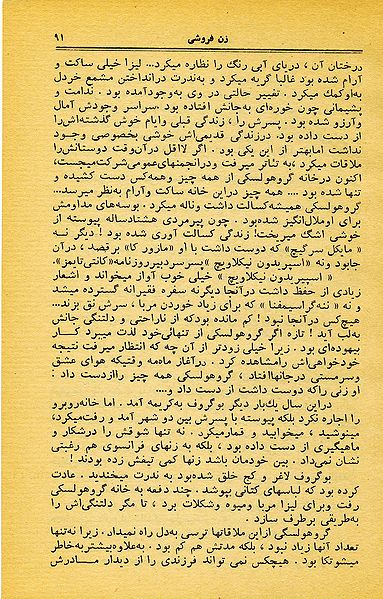 زن فروشی
۹۱
درختان آن ، دریای آبی رنگ را نظاره میکرد... لیزا خیلی ساکت و
آرام شده بود غالباً گریه میکرد و بندرت در انداختن مشمع خردل
به او کمك میکرد . تغییر حالتی در وی بوجود آمده بود . ندامت و
پشیمانی چون خوره‌ای به جانش افتاده بود . سراسر وجودش آمال
و آرزو شده بود . پسرش را ، زندگی قبلی و ایام خوش گذشته‌اش را
از دست داده بود . در زندگی قدیمی‌اش خوشی بخصوصی وجود
نداشت اما بهتر از این یکی بود . اگر لااقل در آن وقت دوستانش را
ملاقات میکرد ، به تئاتر میرفت و در انجمنهای عمومی شرکت میجست،
اکنون در خانه گروهولسکی از همه چیز و همه کس دست کشیده و
تنها شده بود .... همه چیز در این خانه ساکت و آرام به نظر میرسد...
گروهولسکی همیشه کسالت داشت و ناله میکرد . بوسه‌های مداومش
برای او ملال انگیز شده بود . چون پیرمردی هشتاد ساله پیوسته از
خوشی اشگ میریخت! زندگی کسالت آوری شده بود ! دیگر نه
« مایکل سرگیچ » که دوست داشت با او «مازورکا» برقصد ، در آن
جا بود و نه «اسپریدون نیکلاویچ »پسر سردبیر روزنامه «کانتی تایمز».
« اسپیریدون نیکلاویچ » خیلی خوب آواز میخواند و اشعار
زیادی از حفظ داشت در آنجا دیگر نه سفره فقیرانه گسترده میشد
و نه « ننه گراسیمفنا » که برای زیاد خوردن مربا ، سرش نق بزند...
هیچ کس در آنجا نبود ! کم مانده بود که از ناراحتی و دلتنگی جانش
به لب آید ! تازه اگر گروهولسکی از تنهائی خود لذت میبرد کار
بیهوده‌ای بود . زیرا خیلی زودتر از آن چه که انتظار میرفت نتیجه
خودخواهی‌اش را مشاهده کرد . در آغاز ماه مه وقتیکه هوای عشق
و سرمستی در جانها افتاد ، گروهولسکی همه چیز را از دست داد :
او زنی را که دوست داشت از دست داد و....
در این سال یك بار دیگر بوگروف به کریمه آمد . اما خانه روبرو
را اجاره نکرد بلکه پیوسته با پسرش بین دو شهر آمد و رفت میکرد،
مینوشید ، میخوابید و قمار میکرد . نه تنها شوقش را در شکار و
ماهیگیری از دست داده بود ، بلکه به زنهای فرانسوی هم رغبتی
نشان نمی‌داد . بین خودمان باشد زنها کمی تیغش زده بودند !
بوگروف لاغر و کج خلق شده بود به ندرت میخندید . عادت
کرده بود که لباسهای کتانی بپوشد . چند دفعه به خانه گروهولسکی
رفت و برای لیزا مربا و میوه و شکلات برد ، تا مگر دلتنگی‌اش را
به طریقی بر طرف سازد .
گروهولسکی از این ملاقاتها ترسی به دل راه نمیداد. زیرا نه تنها
تعداد آنها زیاد نبود ، بلکه مدتش هم کم بود . به علاوه بیشتر به خاطر
میشوتکا بود . هیچکس نمی تواند فرزندی را از دیدار مادرش